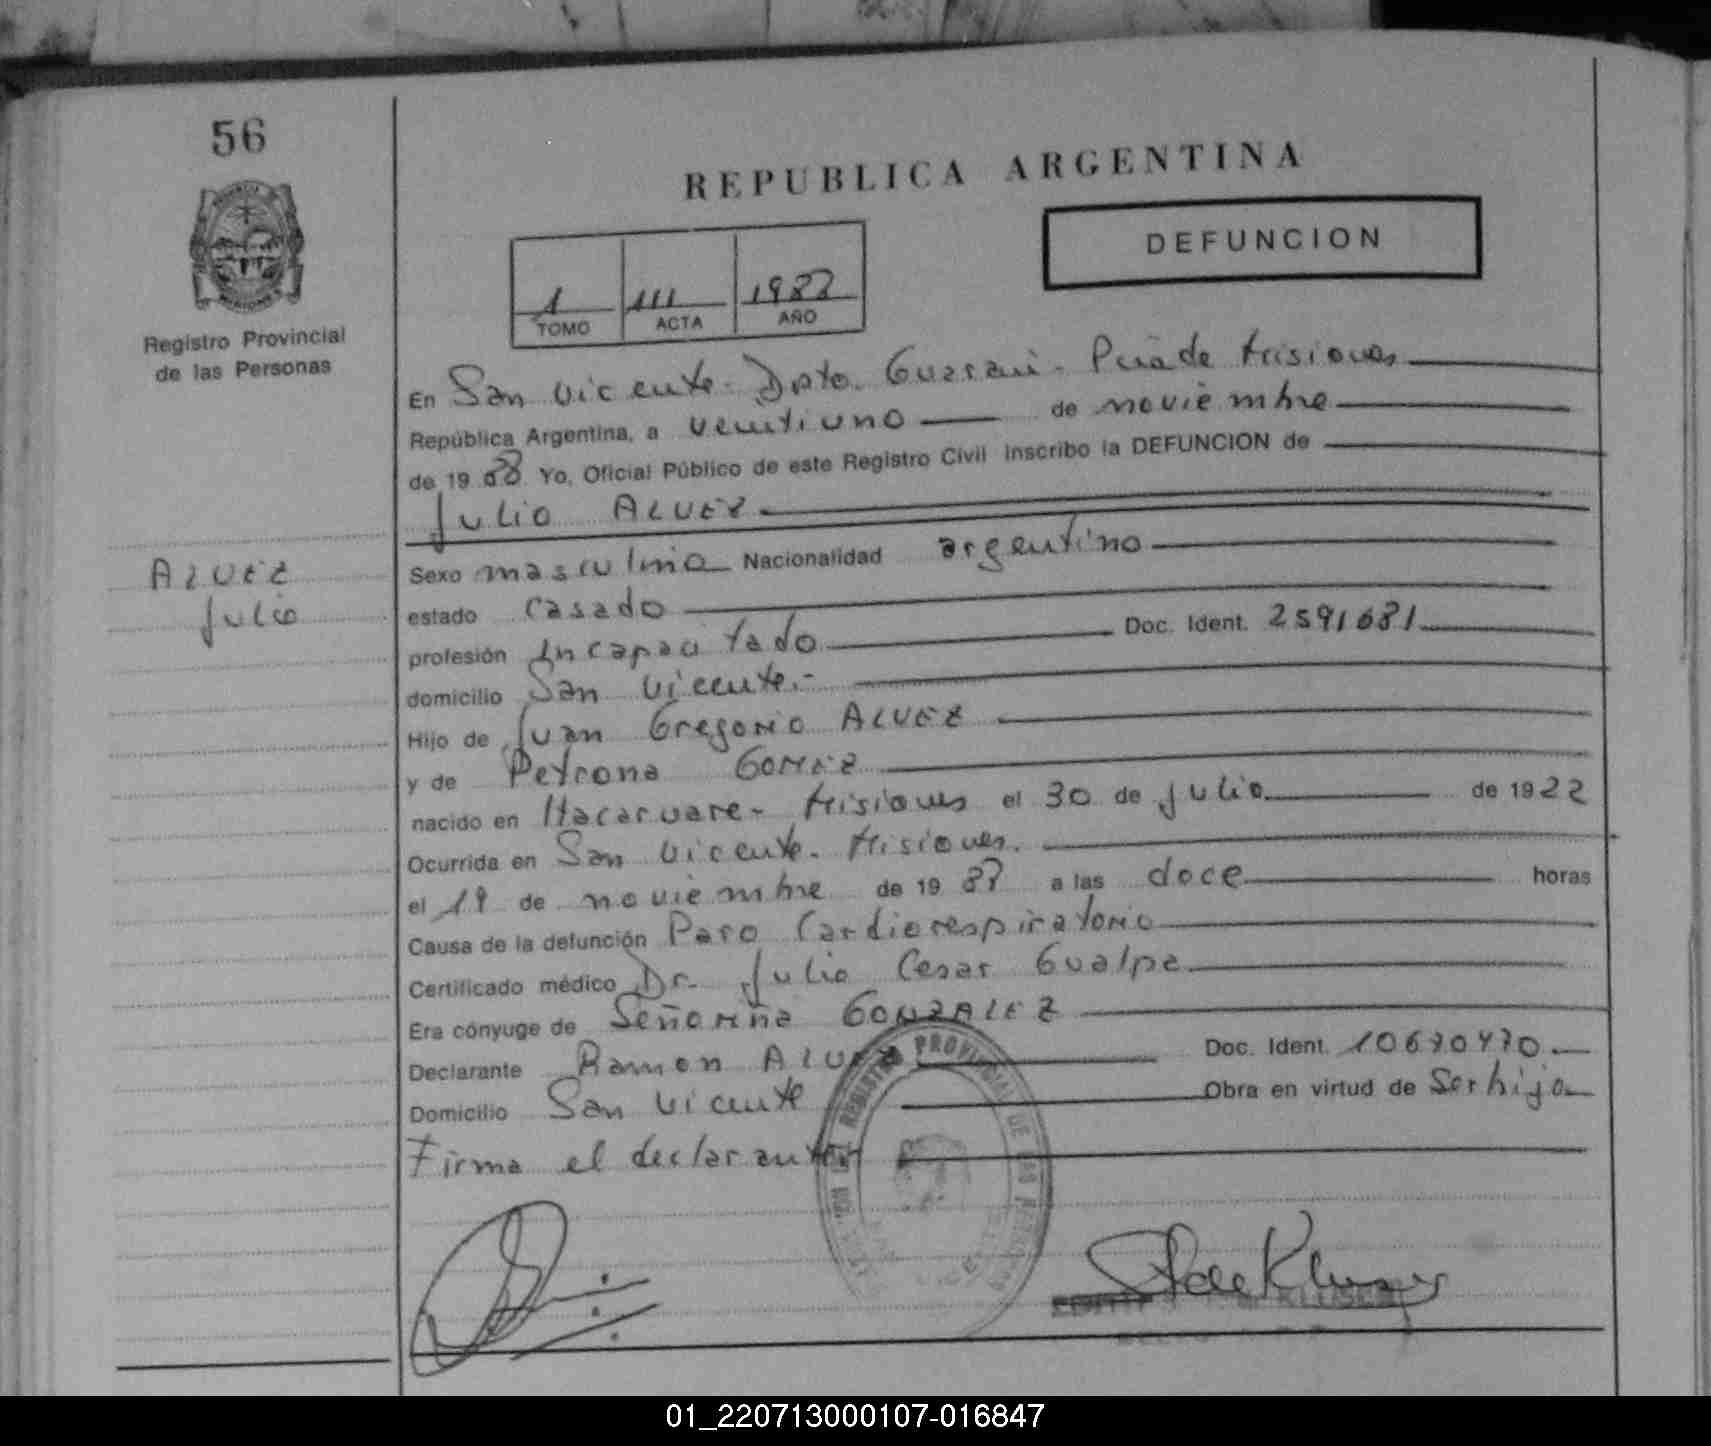 56
REPUBLICA ARGENTINA
DEFUNCION
1 111
TOMO ACTA AÑO
Registro Provincial
de las Personas
En San Vicente - Dpto. Guarani - Pcia de Misiones
República Argentina, a veintiuno de noviembre
de 19 88 Yo, Oficial Público de este Registro Civil Inscribo la DEFUNCION de
Julio ALVEZ
ALVEZ
Julio
Sexo masculino Nacionalidad argentino
estado casado
profesión Incapacitado Doc. Ident. 2591681
domicilio San Vicente.-
Hijo de Juan Gregorio ALVEZ
y de Petrona GOMEZ
nacido en Itacaruare - Misiones el 30 de julio de 1922
Ocurrida en San Vicente - Misiones.
el de noviembre de 19 a las doce horas
Causa de la defunción Paro Cardiorespiratorio
Certificado médico Dr. Julio Cesar Gualpa
Era cónyuge de Señoriña GONZALEZ
Declarante Ramon ALVEZ Doc. Ident. 10670470.
Domicilio San Vicente Obra en virtud de Ser hijo
Firma el declarante
REGISTRO PROVINCIAL DE LAS
01_220713000107-016847